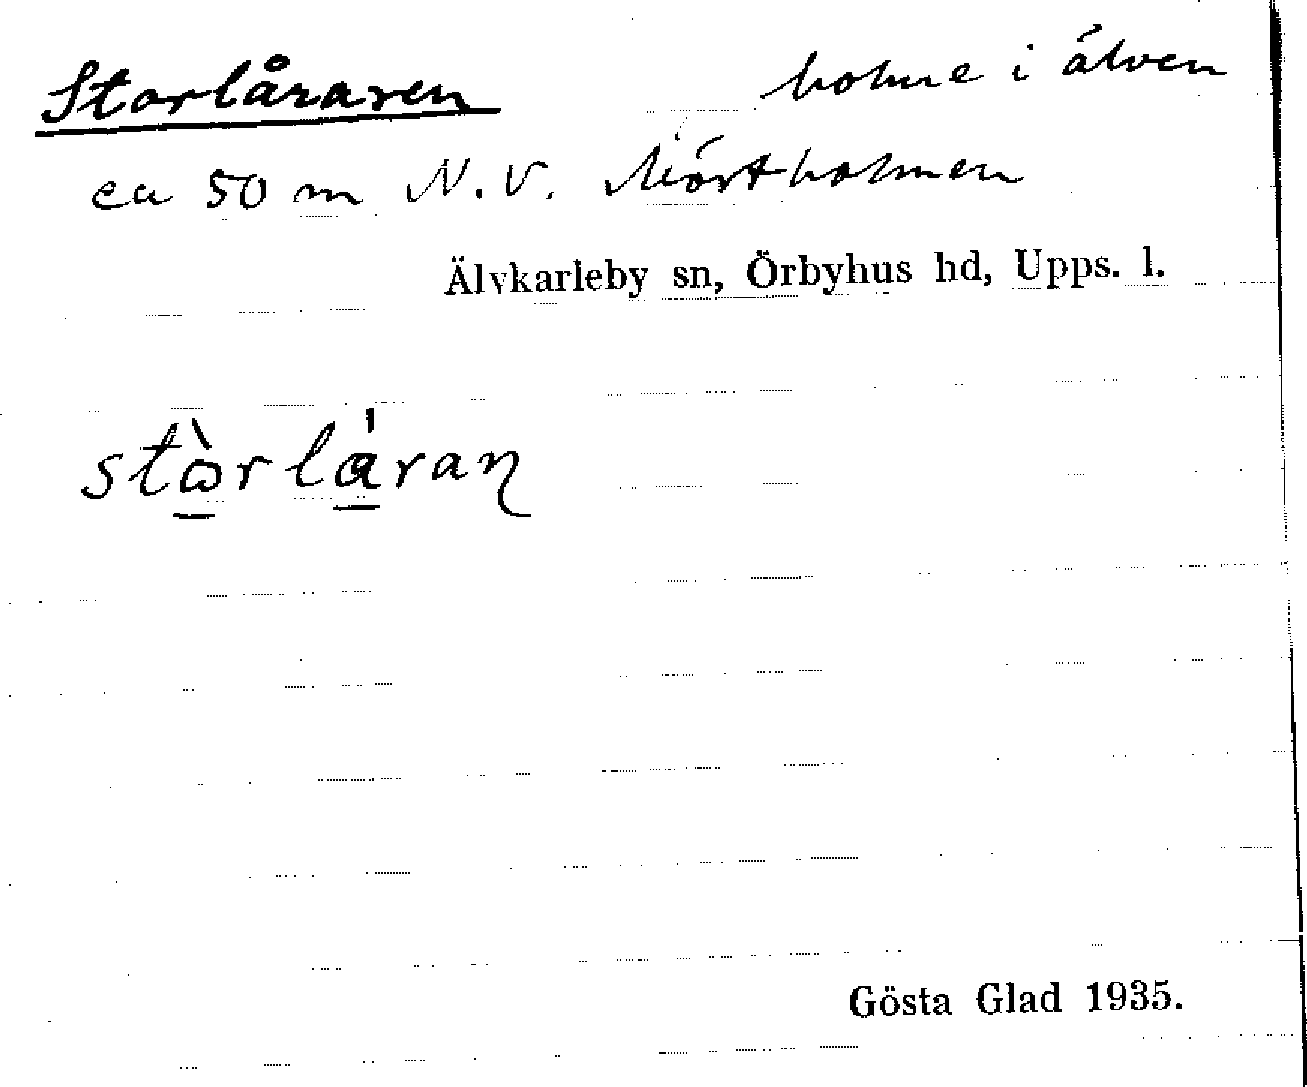 Storlåraren holme i älven
ca 50 m N.V. Mörtholmen
Älvkarleby sn, Örbyhus hd, Upps. l.
Gösta Glad 1935.